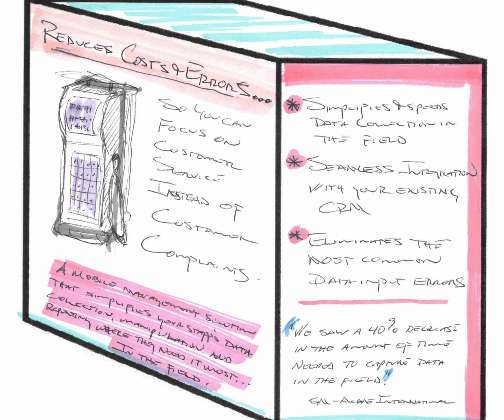 REDUCES COSTS & ERRORS...
SO YOU CAN
FOCUS ON
CUSTOMER
SERVICE
INSTEAD OF
CUSTOMER
COMPLAINTS.
A MOBILE MANAGEMENT SOLUTION
THAT SIMPLIFIES YOUR STAFF'S DATA
COLLECTION, MANIPULATION AND
REPORTING WHERE THEY NEED IT MOST...
IN THE FIELD.
* SIMPLIFIES & SPEEDS
DATA COLLECTION IN
THE FIELD
* SEAMLESS INTEGRATION
WITH YOUR EXISTING
CRM
* ELIMINATES THE
MOST COMMON
DATA-INPUT ERRORS
"WE SAW A 40% DECREASE
IN THE AMOUNT OF TIME
NEEDED TO CAPTURE DATA
IN THE FIELD."
INTERNATIONAL